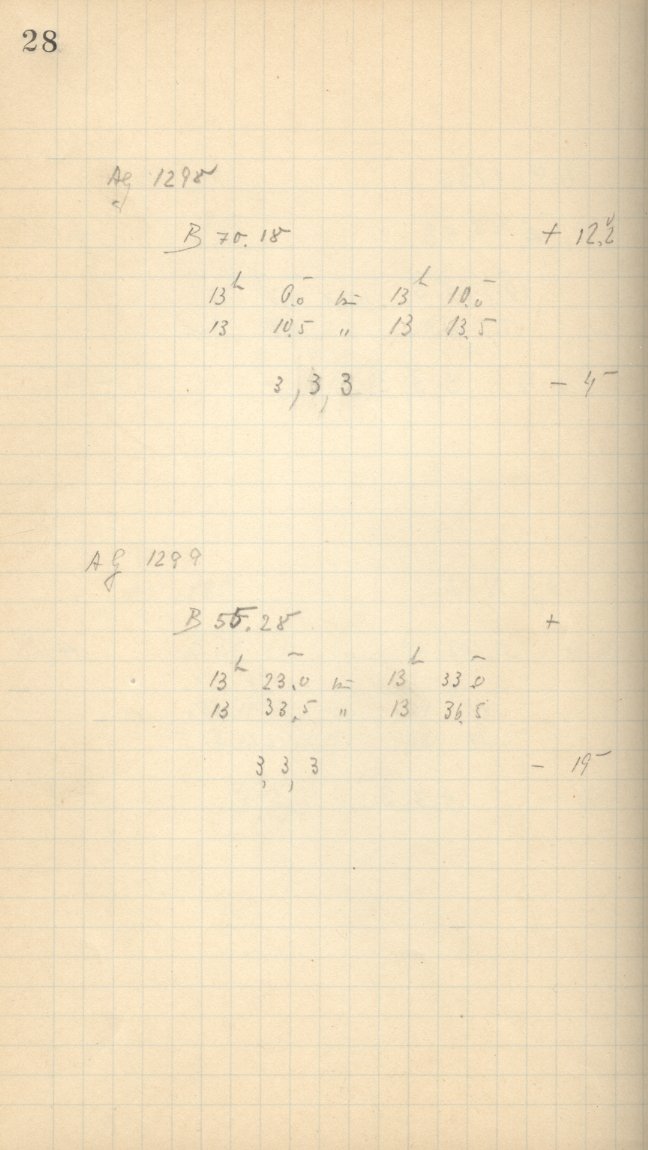 28
AG 1298
B 70.18 + 12.2
13h 0.0m bis 13h 10.0m
13 10.5 " 13 13.5
3, 3, 3 - 4m
AG 1299
B 55.28 +
13h 23.0m bis 13h 33.0m
13 33.5 " 13 36.5
3, 3, 3 - 19m